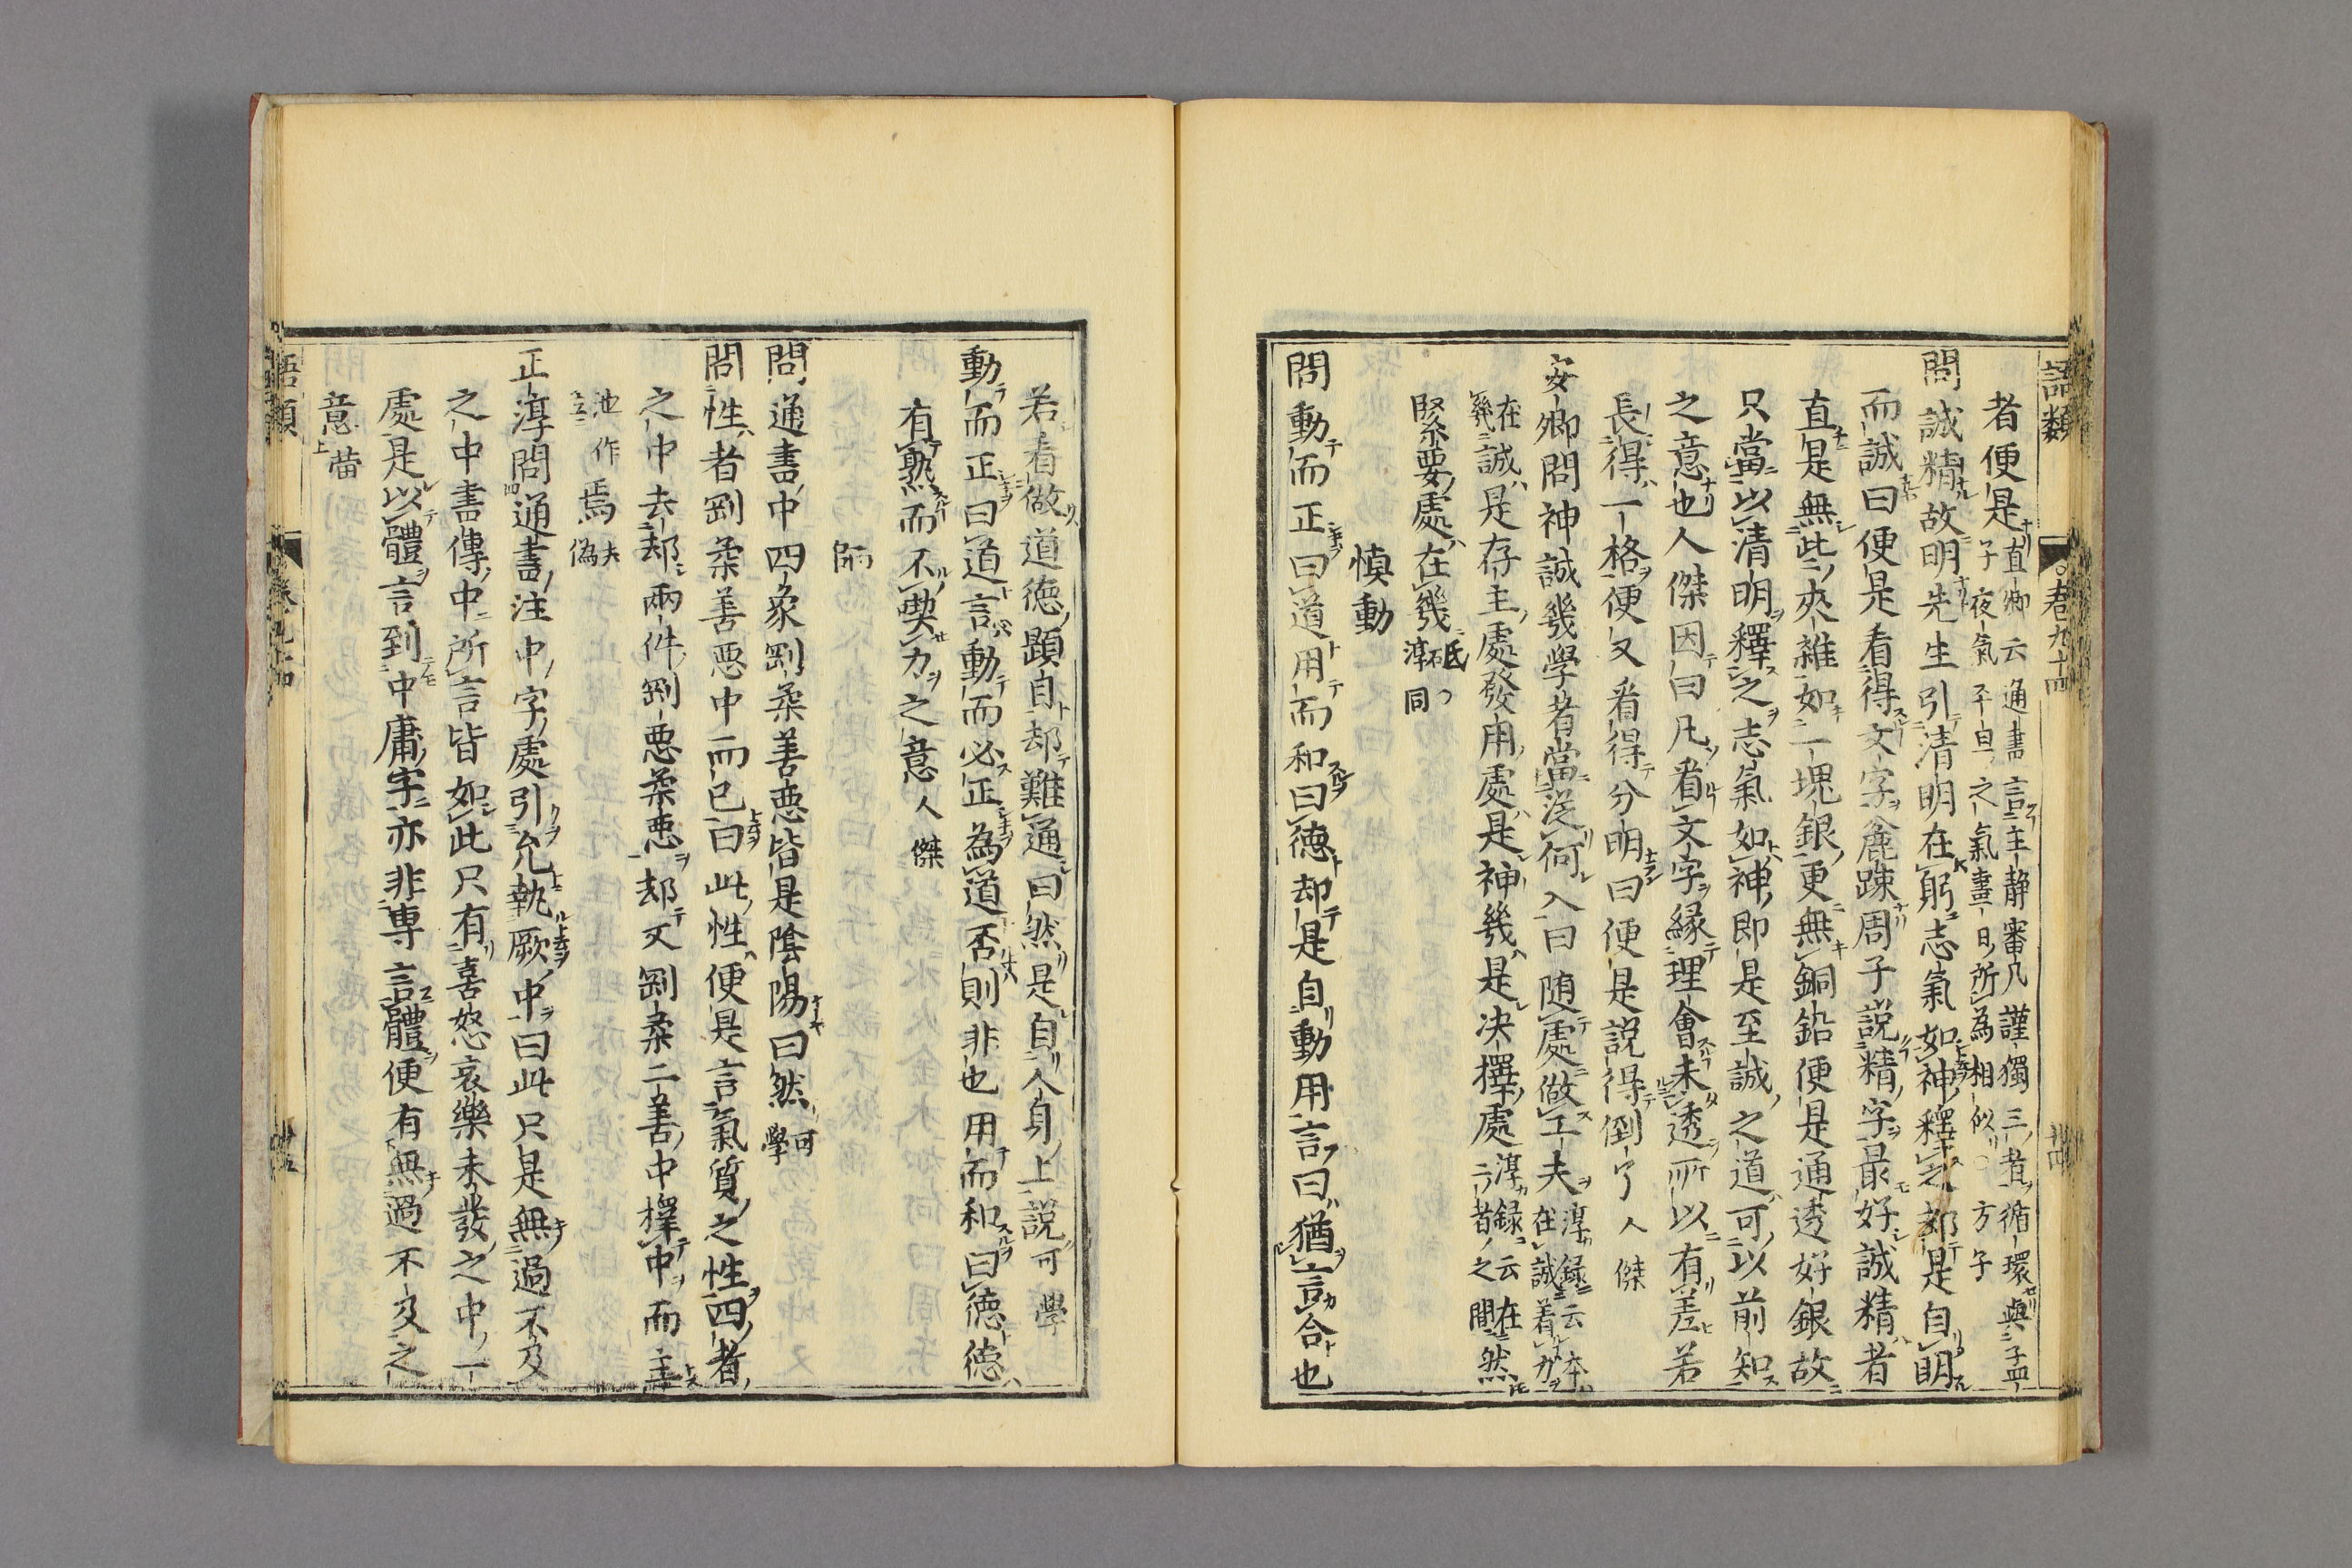 語類 卷九十四
者便是 直卿云通書言主靜審幾謹獨三者循環與孟
子夜氣平旦之氣晝日所為相似 方子
問誠精故明先生引清明在躬志氣如神釋之却是自明
而誠曰便是看得文字麄疎周子説精字最好誠精者
直是無此夾雜如一塊銀更無銅鉛便是通透好銀故
只當以清明釋之志氣如神即是至誠之道可以前知
之意也人傑因曰凡看文字縁理會未透所以有差若
長得一格便又看得分明曰便是説得倒了 人傑
安卿問神誠幾學者當從何入曰随處做工夫 淳録云本
在誠着力
在
幾 誠是存主處發用處是神幾是决擇處 淳録云在
二者之間 然
緊要處在幾 砥
淳同
慎動
問動而正曰道用而和曰德却是自動用言曰猶言合也
若看做道德題目却難通曰然是自人身上説 可學
動而正曰道言動而必正為道否則非也用而和曰德德
有熟而不喫力之意 人傑
師
問通書中四象剛柔善惡皆是陰陽曰然 可
學
問性者剛柔善惡中而已曰此性便是言氣質之性四者
之中去却兩件剛惡柔惡却又剛柔二善中擇中而主
焉 池作夫
偽
正淳問通書注中字處引允執厥中曰此只是無過不及
之中書傳中所言皆如此只有喜怒哀樂未發之中一
處是以體言到中庸字亦非專言體便有無過不及之
意 㽦
語類 卷九十四